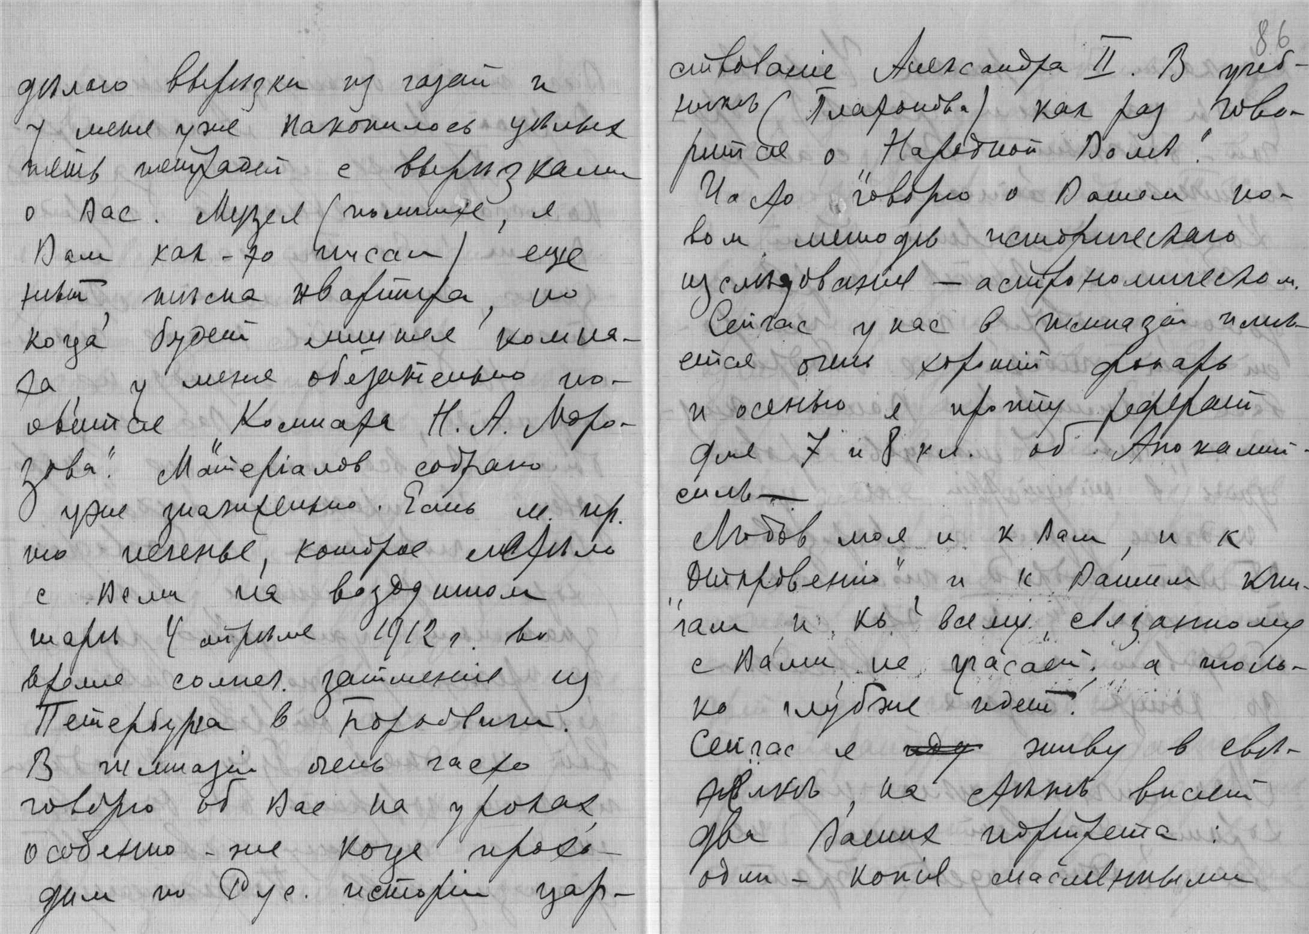 дѣлаю вырѣзки из газет и
у меня уже накопилось цѣлых
пять тетрадей с вырѣзками
о Вас. Музея (помните, я
Вам как-то писал) еще
нѣт, тѣсна квартира, но
когда будет лишняя комна-
та, у меня обязательно по-
явится "Комната Н. А. Моро-
зова". Матеріалов собрано
уже значительно. Есть м. пр.
то печенье, которое летѣло
с Вами на воздушном
шарѣ 4 апрѣля 1912 г. во
время солнеч. затменія из
Петербурга в Боровичи.
В гимназіи очень часто
говорю об Вас на уроках,
особенно-же когда прохо-
дим по Рус. исторіи цар-
86
ствованіе Александра II. В учеб-
никѣ (Платонова) как раз гово-
рится о Народной Волѣ!
Часто говорю о Вашем но-
вом методѣ историческаго
изслѣдованія — астрономическом.
Сейчас у нас в гимназіи имѣ-
ется очень хорошій фонарь
и осенью я прочту реферат
для 7 и 8 кл. об Апокалип-
сисѣ —
Любовь моя и к Вам, и к
"Откровенію" и к Вашим кни-
гам и къ всему, связанному
с Вами не угасает, а толь-
ко глубже идет!
Сейчас я иду живу в свѣ-
телкѣ, на стѣнѣ висят
два Ваших портрета:
один - копія масляными